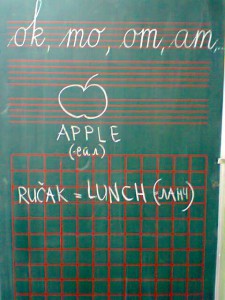 ok, mo, om, am,..
APPLE
(ейл)
RUČAK = LUNCH (ЛАНЧ)